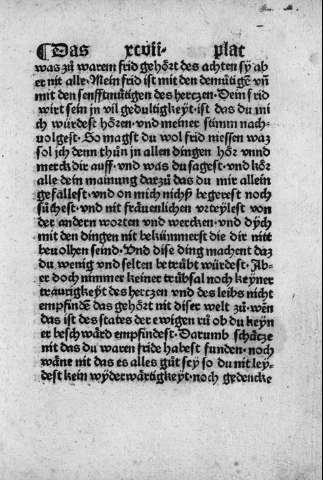 ¶ Das xcvii· plat
was zů warem frid gehőrt des achten sy ab
er nit alle · Mein frid ist mit den demůtigē vñ
mit den senfftmůtigen des hertzen · Dein frid
wirt sein in vil gedultigkeyt · ist das du mi
ch würdest hőren · vnd meiner stimm nach-
volgest · So magst du wol frid niessen waz
sol ich denn thůn jn allen dingen hőr vnnd
merck dir auff · vnd was du sagest · vnd kőr
alle dein mainung darzů das du mir allein
gefállest · vnd on mich nichß begerest noch
sůchest · vnd nit fráuenlichen vrteylest von
der andern worten vnd wercken · vnd dych
mit den dingen nit bekümmerst die dir nitt
beuolhen seind · Vnd dise ding machent daz
du wenig vnd selten betrübt würdest · Ab-
er doch nimmer keiner trübsal noch keyner
traurigkeyt des hertzen vnd des leibs nicht
empfindē das gehőrt nit diser welt zů · wēn
das ist des states der ewigen rů ob du keyn
er beschwárd empfindest · Darumb schátze
nit das du waren fride habest funden · noch
wáne nit das es alles gůt sey so du nit ley-
dest kein wyderwártigkeyt · noch gedencke